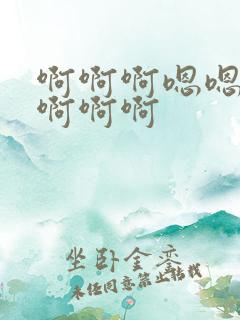 啊啊啊嗯嗯
啊啊啊
坐卧金銮
未经同意禁止转载